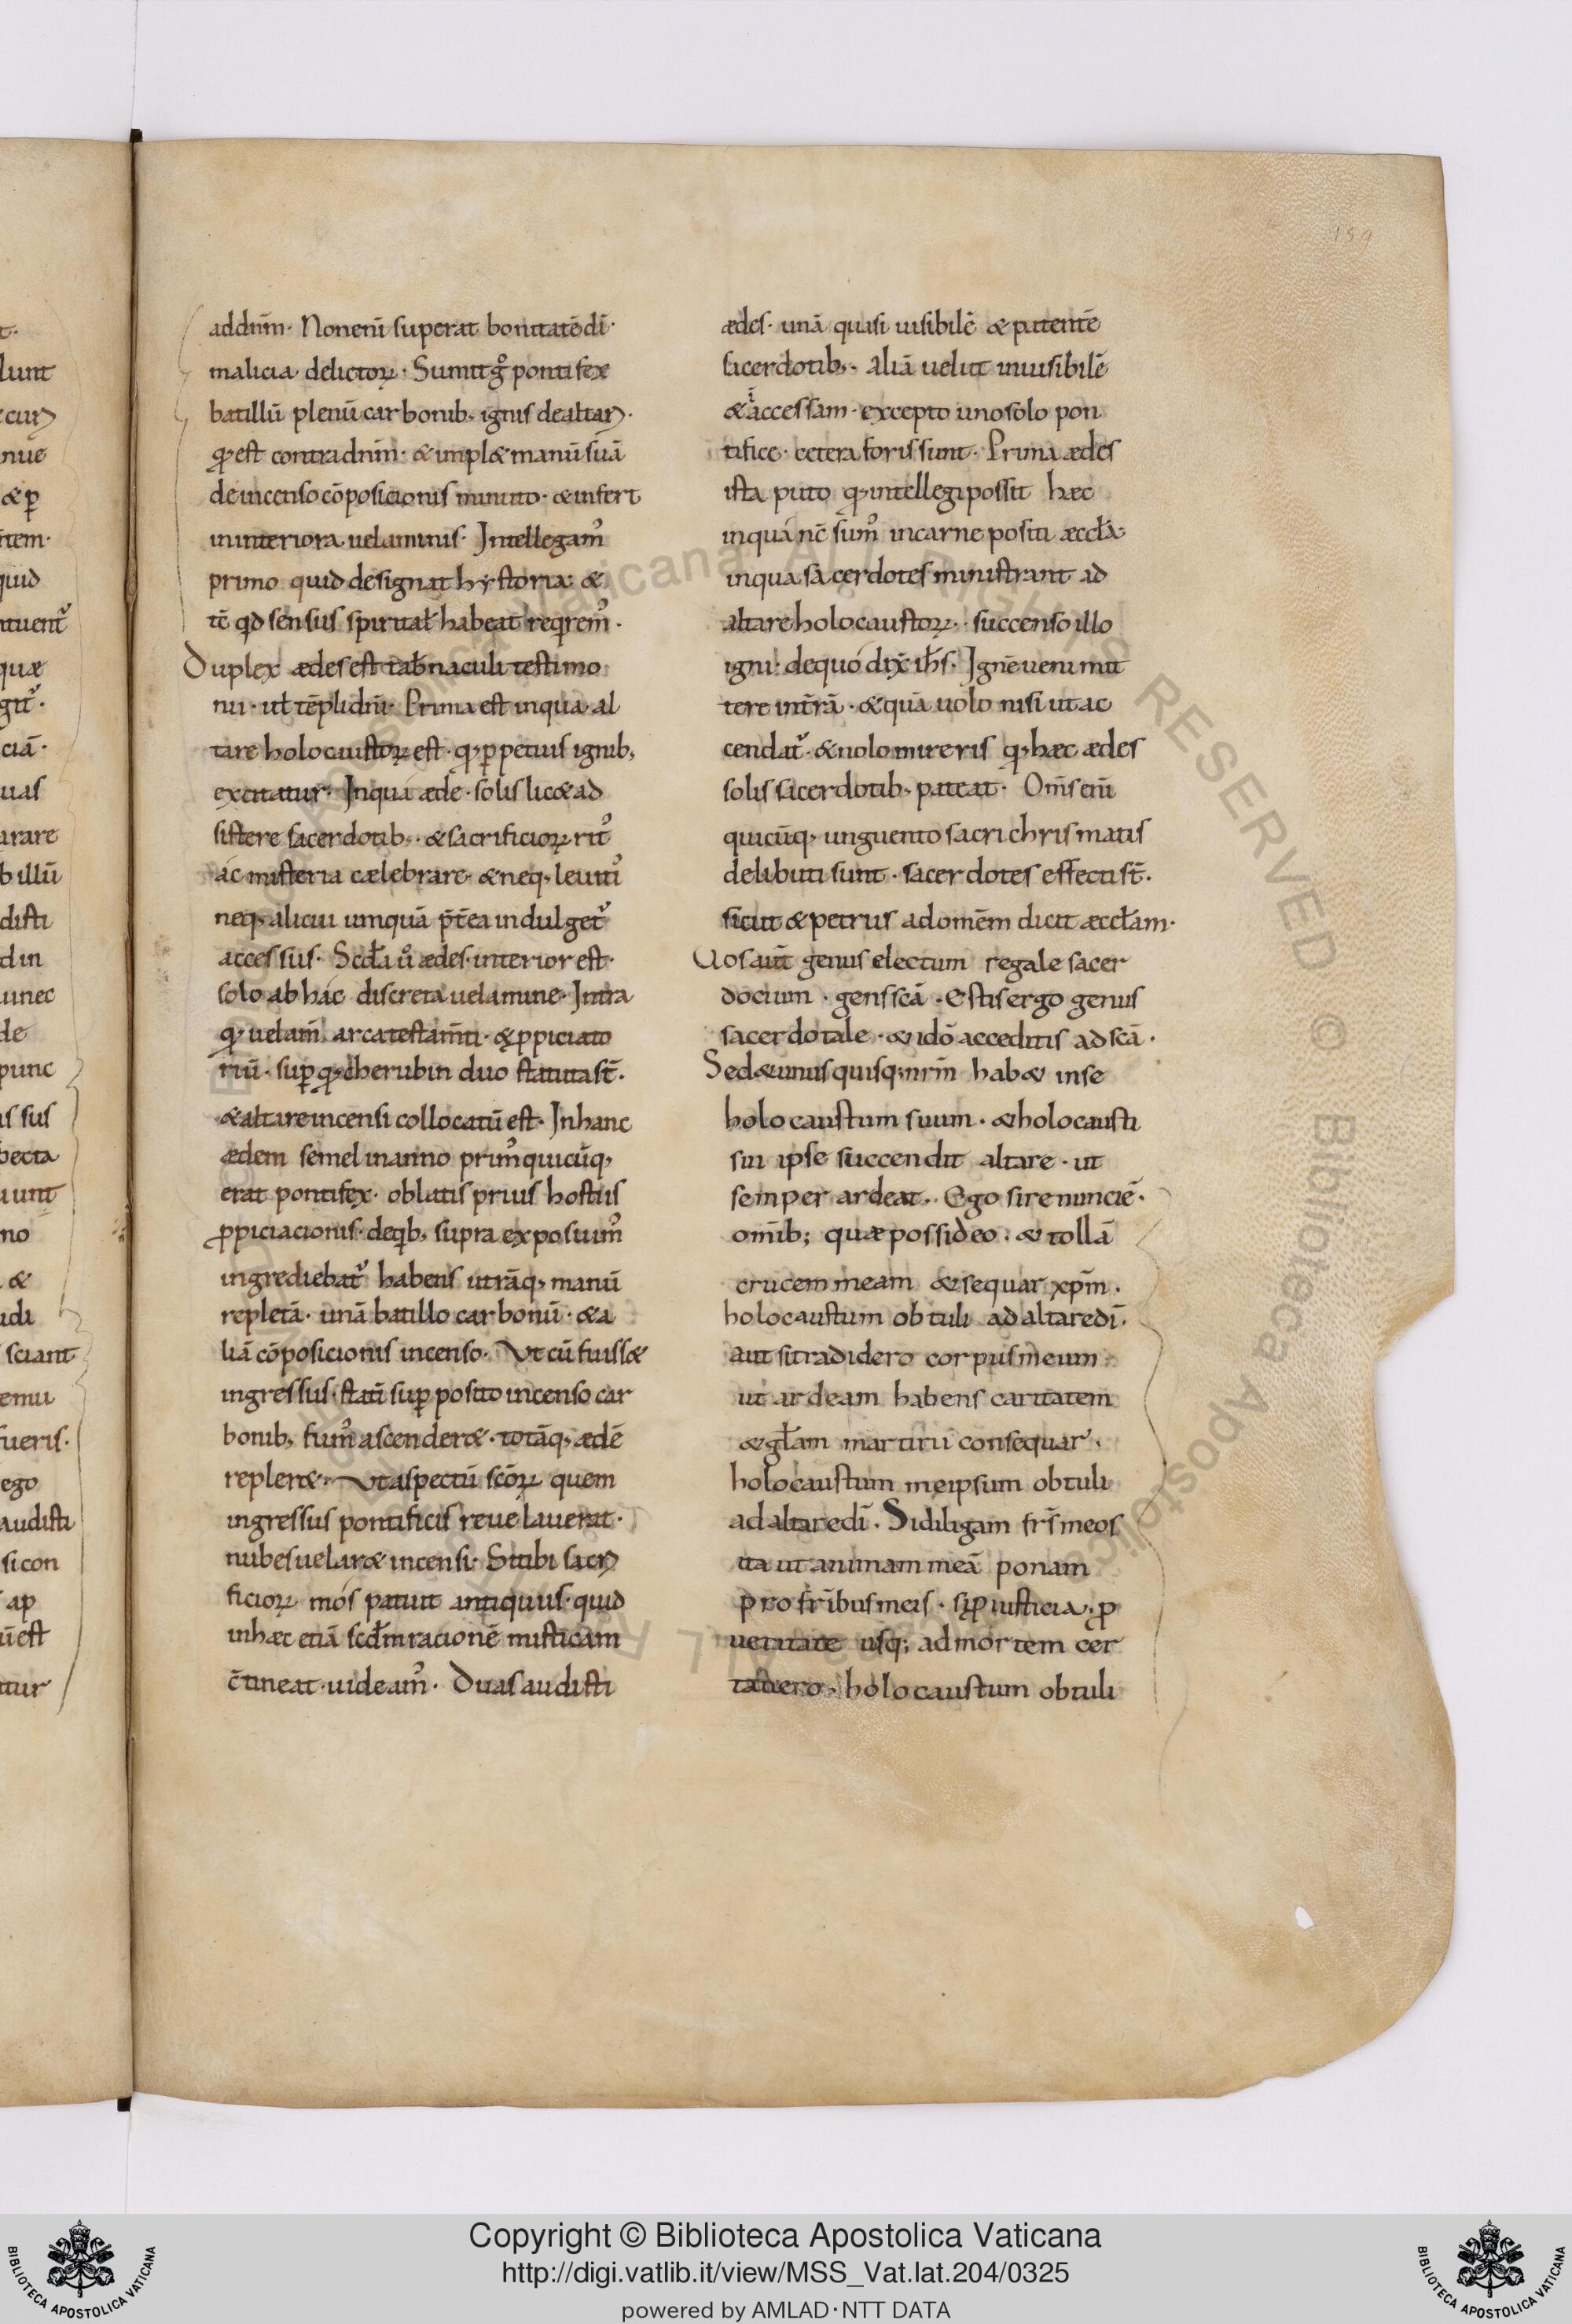 159
addnm̄· Nonenī superat bonitatē dī·
malicia delictoꝝ· Sumit gͦ pontifex
batillū plenū carbonib; ignis dealtarị·
qđ est contra dnm̄· & impl& manū suā
deincenso cōposicionis minuto· & infert
ininteriora uelaminis· Intellegam᾽
primo quid designat hystoria· &
tc̄ qd sensus spiritał habeat reqrem᾽·
Duplex ædes est tab̄naculi testimo
nii· uł tēpli dnī· Prima est inqua al
tare holocaustoꝝ est· qđ ꝑpetuis ignib;
excitatur· Inqua æde· solis lic& ad
sistere sacerdotib;· & sacrificioꝝ rit᾽
ac misteria cælebrare· & neq; leuiti᾽
neq; alicui umquā pt̄ea indulget᾽
accessus· Scđa ů ædes· interior est·
solo ab hac discreta uelamine· Intra
qđ uelam̄ arca testam̄ti· & ꝓpiciato
riū· suꝑ qđ cherubin duo statuta st̄·
& altare incensi collocatū est· Inhanc
ædem semel inanno prim᾽ quicūq;
erat pontifex· oblatis prius hostiis
ꝓpiciacionis· deqb; supra exposuim᾽
ingrediebat᾽ habens utrāq; manū
repletā· unā batillo carbonū· & a
liā cōposicionis incenso· Vt cū fuiss&
ingressus· statī suꝑposito incenso car
bonib; fum᾽ ascender&· totāq; ædē
repler&· Vt aspectū scōꝝ quem
ingressus pontificis reuelauerat·
nubes uelar& incensi· Si tibi sacri
ficioꝝ mos patuit antiquus· quid
inhæc etiā scđm racionē misticam
c̄tineat· uideam᾽· Duas audisti
ædes· unā quasi uisibilē & patentē
sacerdotib;· aliā uelut inuisibilē
& iaccessam· excepto uno solo pon
tifice· cetera foris sunt· Prima ædes
ista puto qđ intellegi possit hæc
inqua nc̄ sum᾽ incarne positi æccła·
inqua sacerdotes ministrant ad
altare holocaustoꝝ· succenso illo
igni· dequo dix̄ ih̄s· Ignē ueni mit
tere int̄rā· & quā uolo nisi ut ac
cendat᾽· & nolo mireris qđ hæc ædes
solis sacerdotib; pateat· Om̄s enī
quicūq; unguento sacri chrismatis
delibuti sunt· sacerdotes effecti st̄·
sicut & petrus ad omēm dicit æccłam·
Uos aut̄ genus electum regale sacer
docium· gens scā· Estis ergo genus
sacerdotale· & idō acceditis ad scā·
Sed & unusquisq; nrm̄ hab& inse
holocaustum suum· & holocausti
sui ipse succendit altare· ut
semper ardeat· Ego si renunciē·
om̄ib; quæ possideo· & tollā
crucem meam & sequar xp̄m·
holocaustum obtuli ad altare dī·
aut si tradidero corpus meum
ut ardeam habens caritatem
& głam martirii consequar·
holocaustum meipsum obtuli
ad altare dī· Si diligam frs̄ meos
ita ut animam meā ponam
pro frībus meis· si ꝓ iusticia· ꝓ
ueritate usq; ad mortem cer
tauero· holocaustum obtuli
Copyright © Biblioteca Apostolica Vaticana
http://digi.vatlib.it/view/MSS_Vat.lat.204/0325
powered by AMLAD·NTT DATA